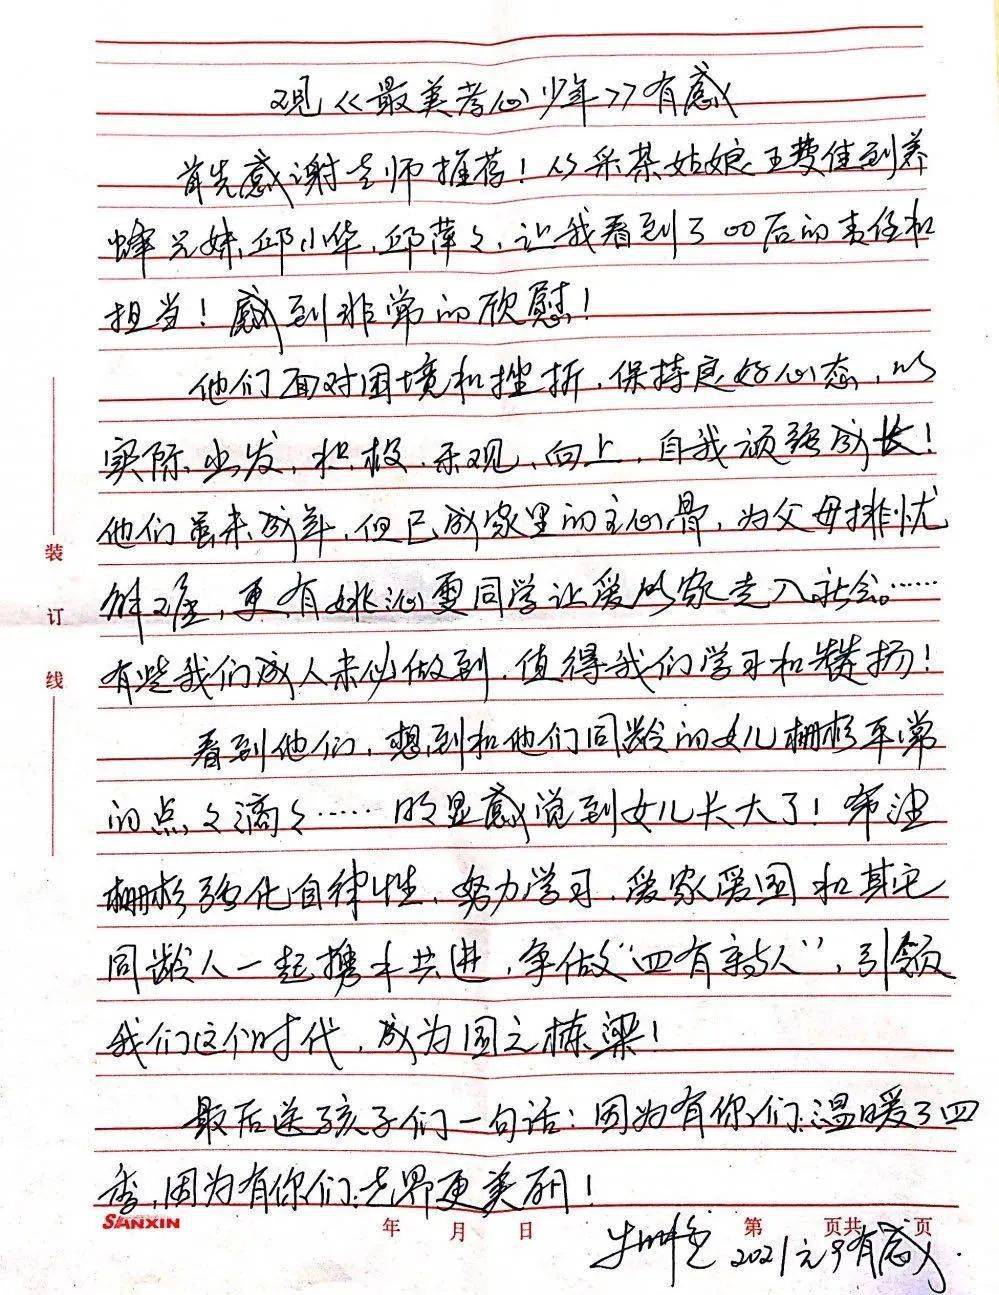 观《最美孝心少年》有感
首先感谢老师推荐！从采茶姑娘王楚佳到养
蜂兄妹邱小华、邱萍々，让我看到了00后的责任和
担当！感到非常的欣慰！
他们面对困境和挫折，保持良好心态，以
实际出发，积极、乐观、向上，自我顽强成长！
他们虽未成年，但已成家里的主心骨，为父母排忧
解难，更有姚沁雯同学让爱从家走入社会……
有些我们成人未必做到，值得我们学习和赞扬！
看到他们，想到和他们同龄的女儿栅杉平常
的点々滴々……明显感觉到女儿长大了！希望
栅杉强化自律性，努力学习，爱家爱国和其它
同龄人一起携手共进，争做“四有新人”，引领
我们这个时代，成为国之栋梁！
最后送孩子们一句话：因为有你们温暖了四
季，因为有你们世界更美丽！
装
订
线
SANXIN 年 月 日 第 页共 页
2021元.9有感